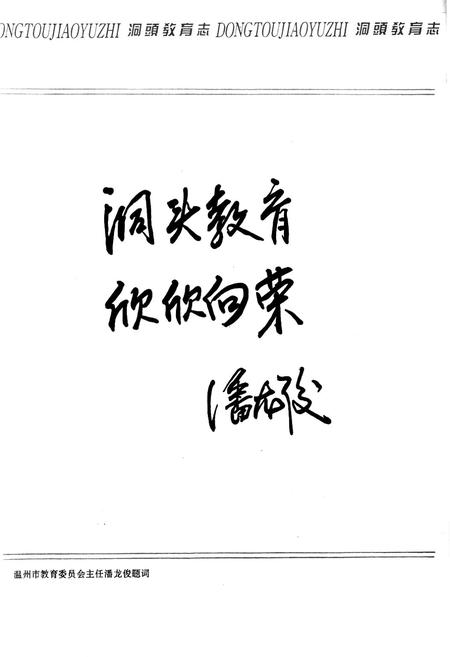 ONGTOUJIAOYUZHI 洞頭教育志 DONGTOUJIAOYUZHI 洞頭教育志
洞头教育
欣欣向荣
潘龙俊
温州市教育委员会主任潘龙俊题词